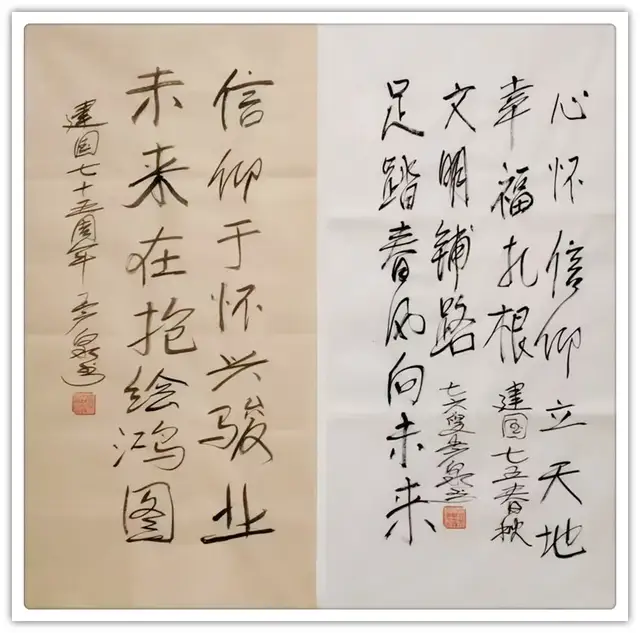 心怀信仰立天地
幸福扎根
文明铺路
足踏春风向未来
建国七五春秋
七六叟泉书
信仰于怀兴骏业
未来在抱绘鸿图
建国七十五周年 泉书